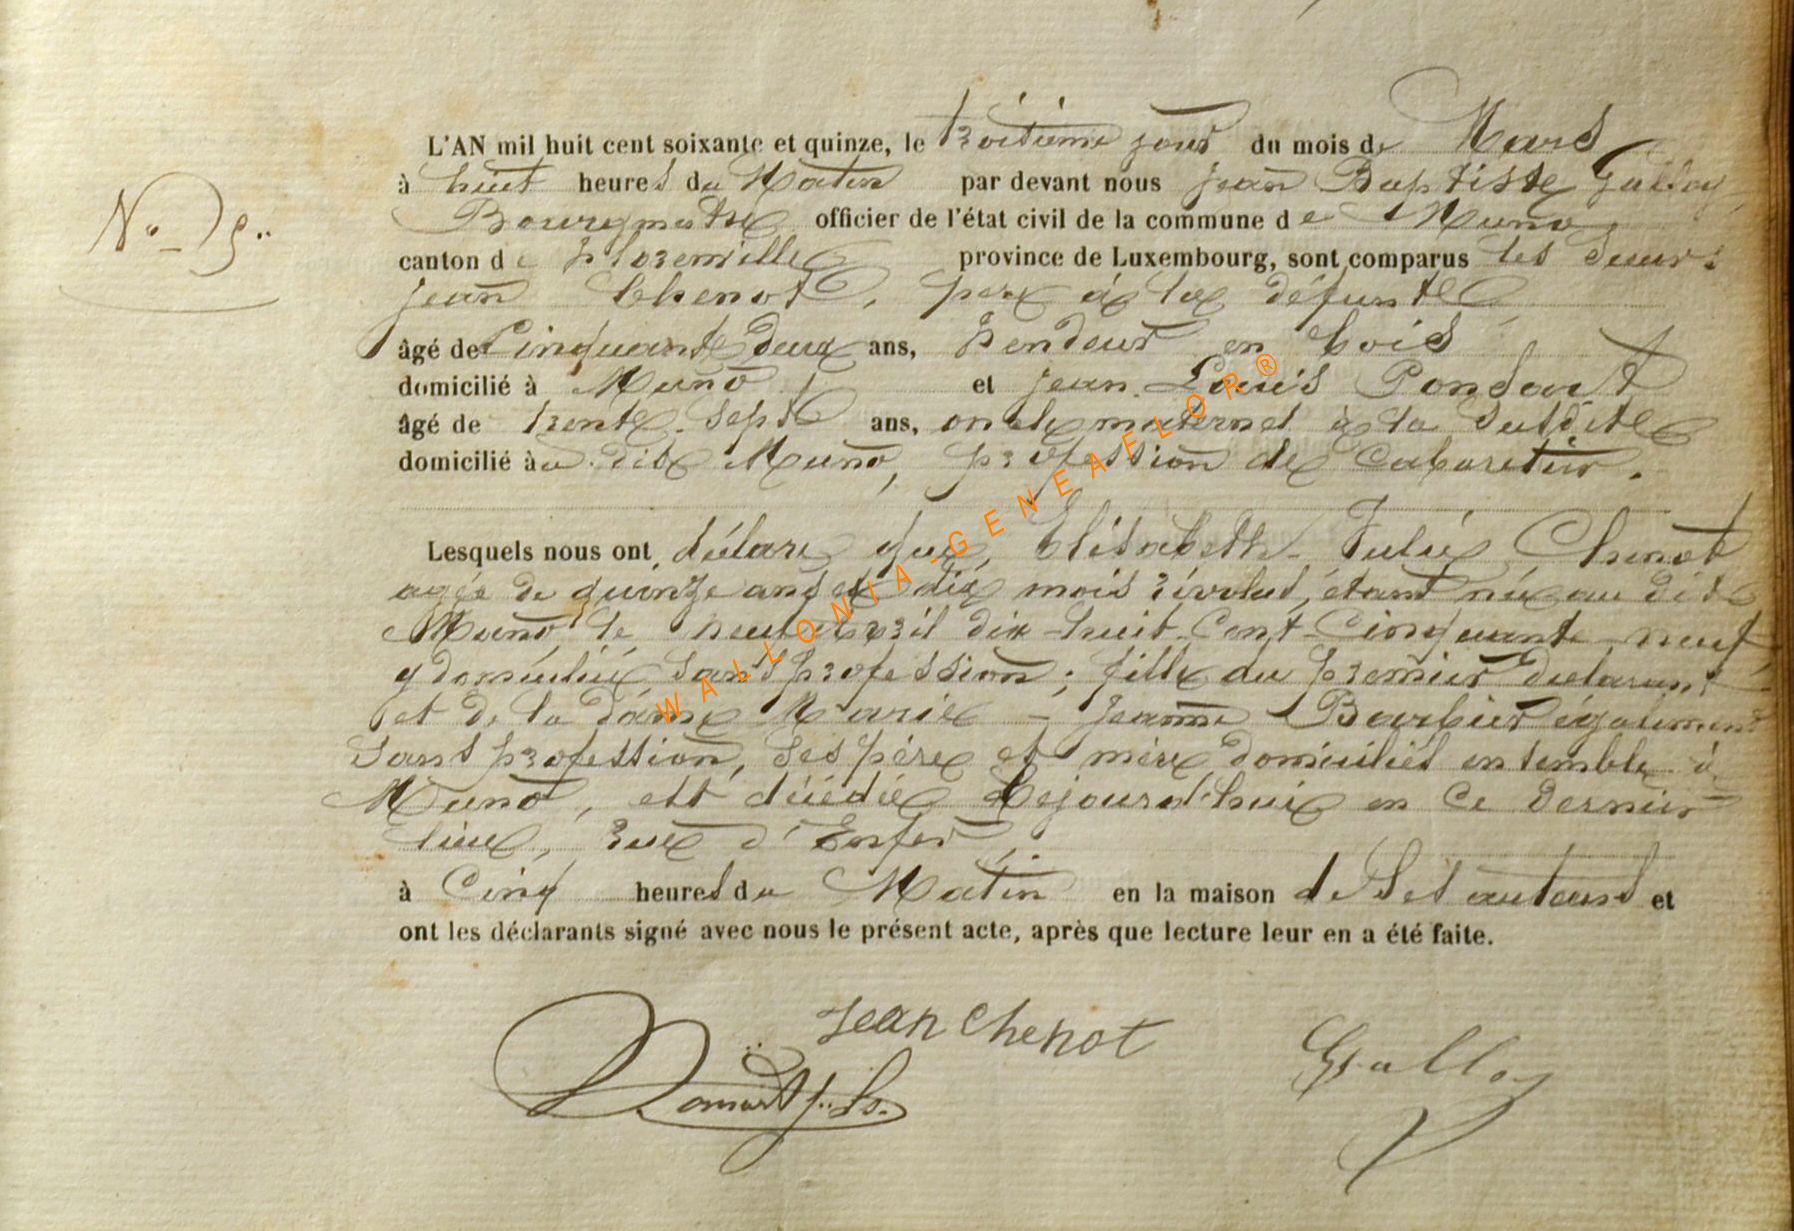 L'AN mil huit cent soixante et quinze, le troisième jour du mois de Mars
à huit heures du Matin par devant nous Jean Baptiste Galloy
Bourgmestre officier de l'état civil de la commune de Muno
canton de Florenville province de Luxembourg, sont comparus les Sieurs
Jean Chenot, père à la défunte
âgé de Cinquante deux ans, Fendeur en bois
domicilié à Muno et Jean Louis
âgé de trente-sept ans, oncle maternel à la susdite
domicilié au dit Muno, profession de Cabaretier.
Lesquels nous ont déclaré que, Elisabeth-Julie Chenot
agée de quinze ans et dix mois révolus, étant née au dit
Muno, le neuf avril dix-huit-Cent-Cinquante-neuf
y domiciliée, sans profession; fille du premier déclarant
et de la dame Marie-Jeanne Barbier également
sans profession, ses père et mère domiciliés ensemble à
Muno, est décédée Cejourd'hui en ce dernier
lieu, rue d'Enfer,
à Cinq heures du Matin en la maison de Ses auteurs et
ont les déclarants signé avec nous le présent acte, après que lecture leur en a été faite.
Jean Chenot
Galloy
WALLONIA-GENEAFLOR®